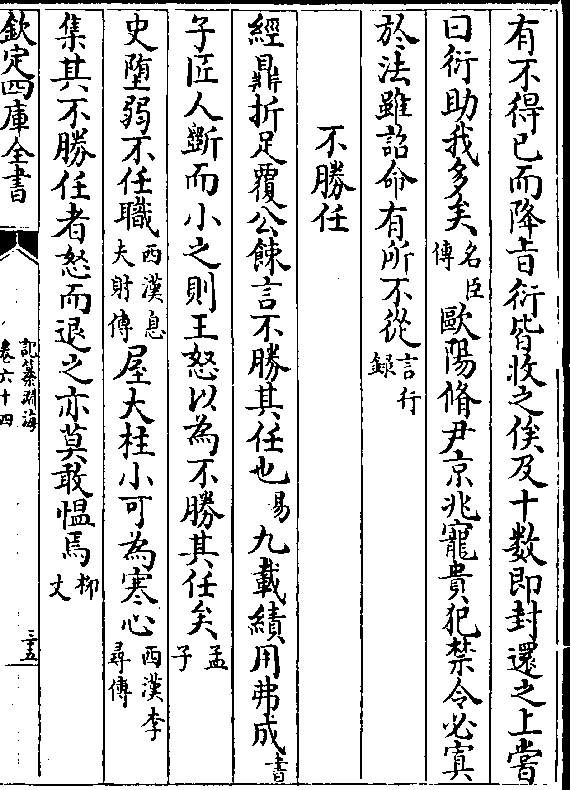 有不得已而降㫖衍皆收之俟及十數即封還之上嘗
曰衍助我多矣名臣傳歐陽脩尹京兆寵貴犯禁令必寘
於法雖詔命有所不從言行録
不勝任
經鼎折足覆公餗言不勝其任也易九載績用弗成書
子匠人斵而小之則王怒以為不勝其任矣孟子
史墮弱不任職西漢息夫躬傳屋大柱小可為寒心西漢李尋傳
集其不勝任者怒而退之亦莫敢愠焉柳文
欽定四庫全書
記纂淵海
卷六十四
三五